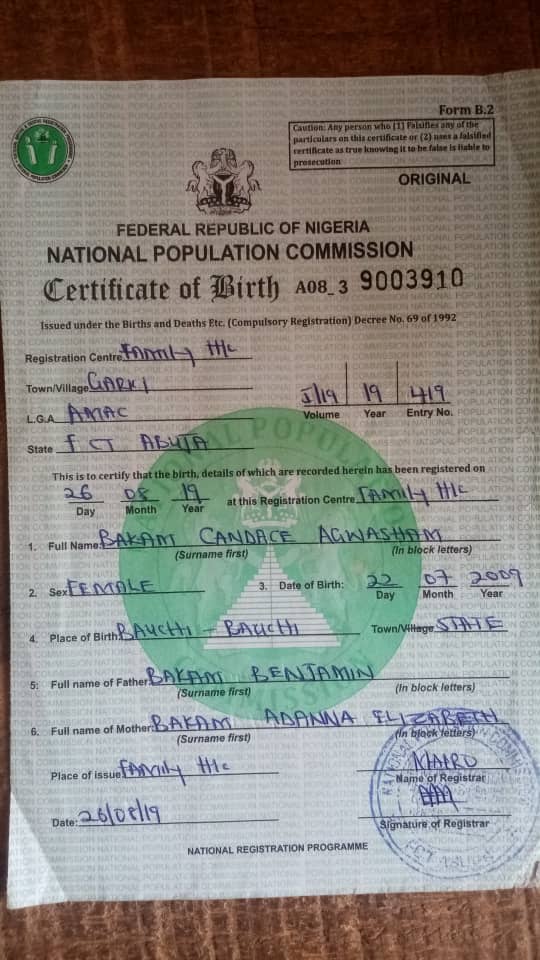 Form B.2
Caution: Any person who (1) Falsifies any of the
particulars on this certificate or (2) uses a falsified
certificate as true knowing it to be false is liable to
prosecution
ORIGINAL
FEDERAL REPUBLIC OF NIGERIA
NATIONAL POPULATION COMMISSION
Certificate of Birth A08_3 9003910
Issued under the Births and Deaths Etc. (Compulsory Registration) Decree No. 69 of 1992
Registration Centre Family Hlc
Town/Village GARKI
I/19 19 419
L.G.A AMAC Volume Year Entry No.
State FCT ABUJA
This is to certify that the birth, details of which are recorded herein has been registered on
26 08 19 at this Registration Centre Family Hlc
Day Month Year
1. Full Name: BAKAM CANDACE AGWASHAM
(Surname first) (In block letters)
2. Sex FEMALE 3. Date of Birth: 22 07 2009
Day Month Year
4. Place of Birth: BAUCHI - BAUCHI Town/Village STATE
5: Full name of Father: BAKAM BENJAMIN
(Surname first) (In block letters)
6. Full name of Mother: BAKAM ADANNA ELIZABETH
(Surname first) (In block letters)
Place of issue Family Hlc MAIRO
Name of Registrar
Date: 26/08/19
Signature of Registrar
NATIONAL REGISTRATION PROGRAMME